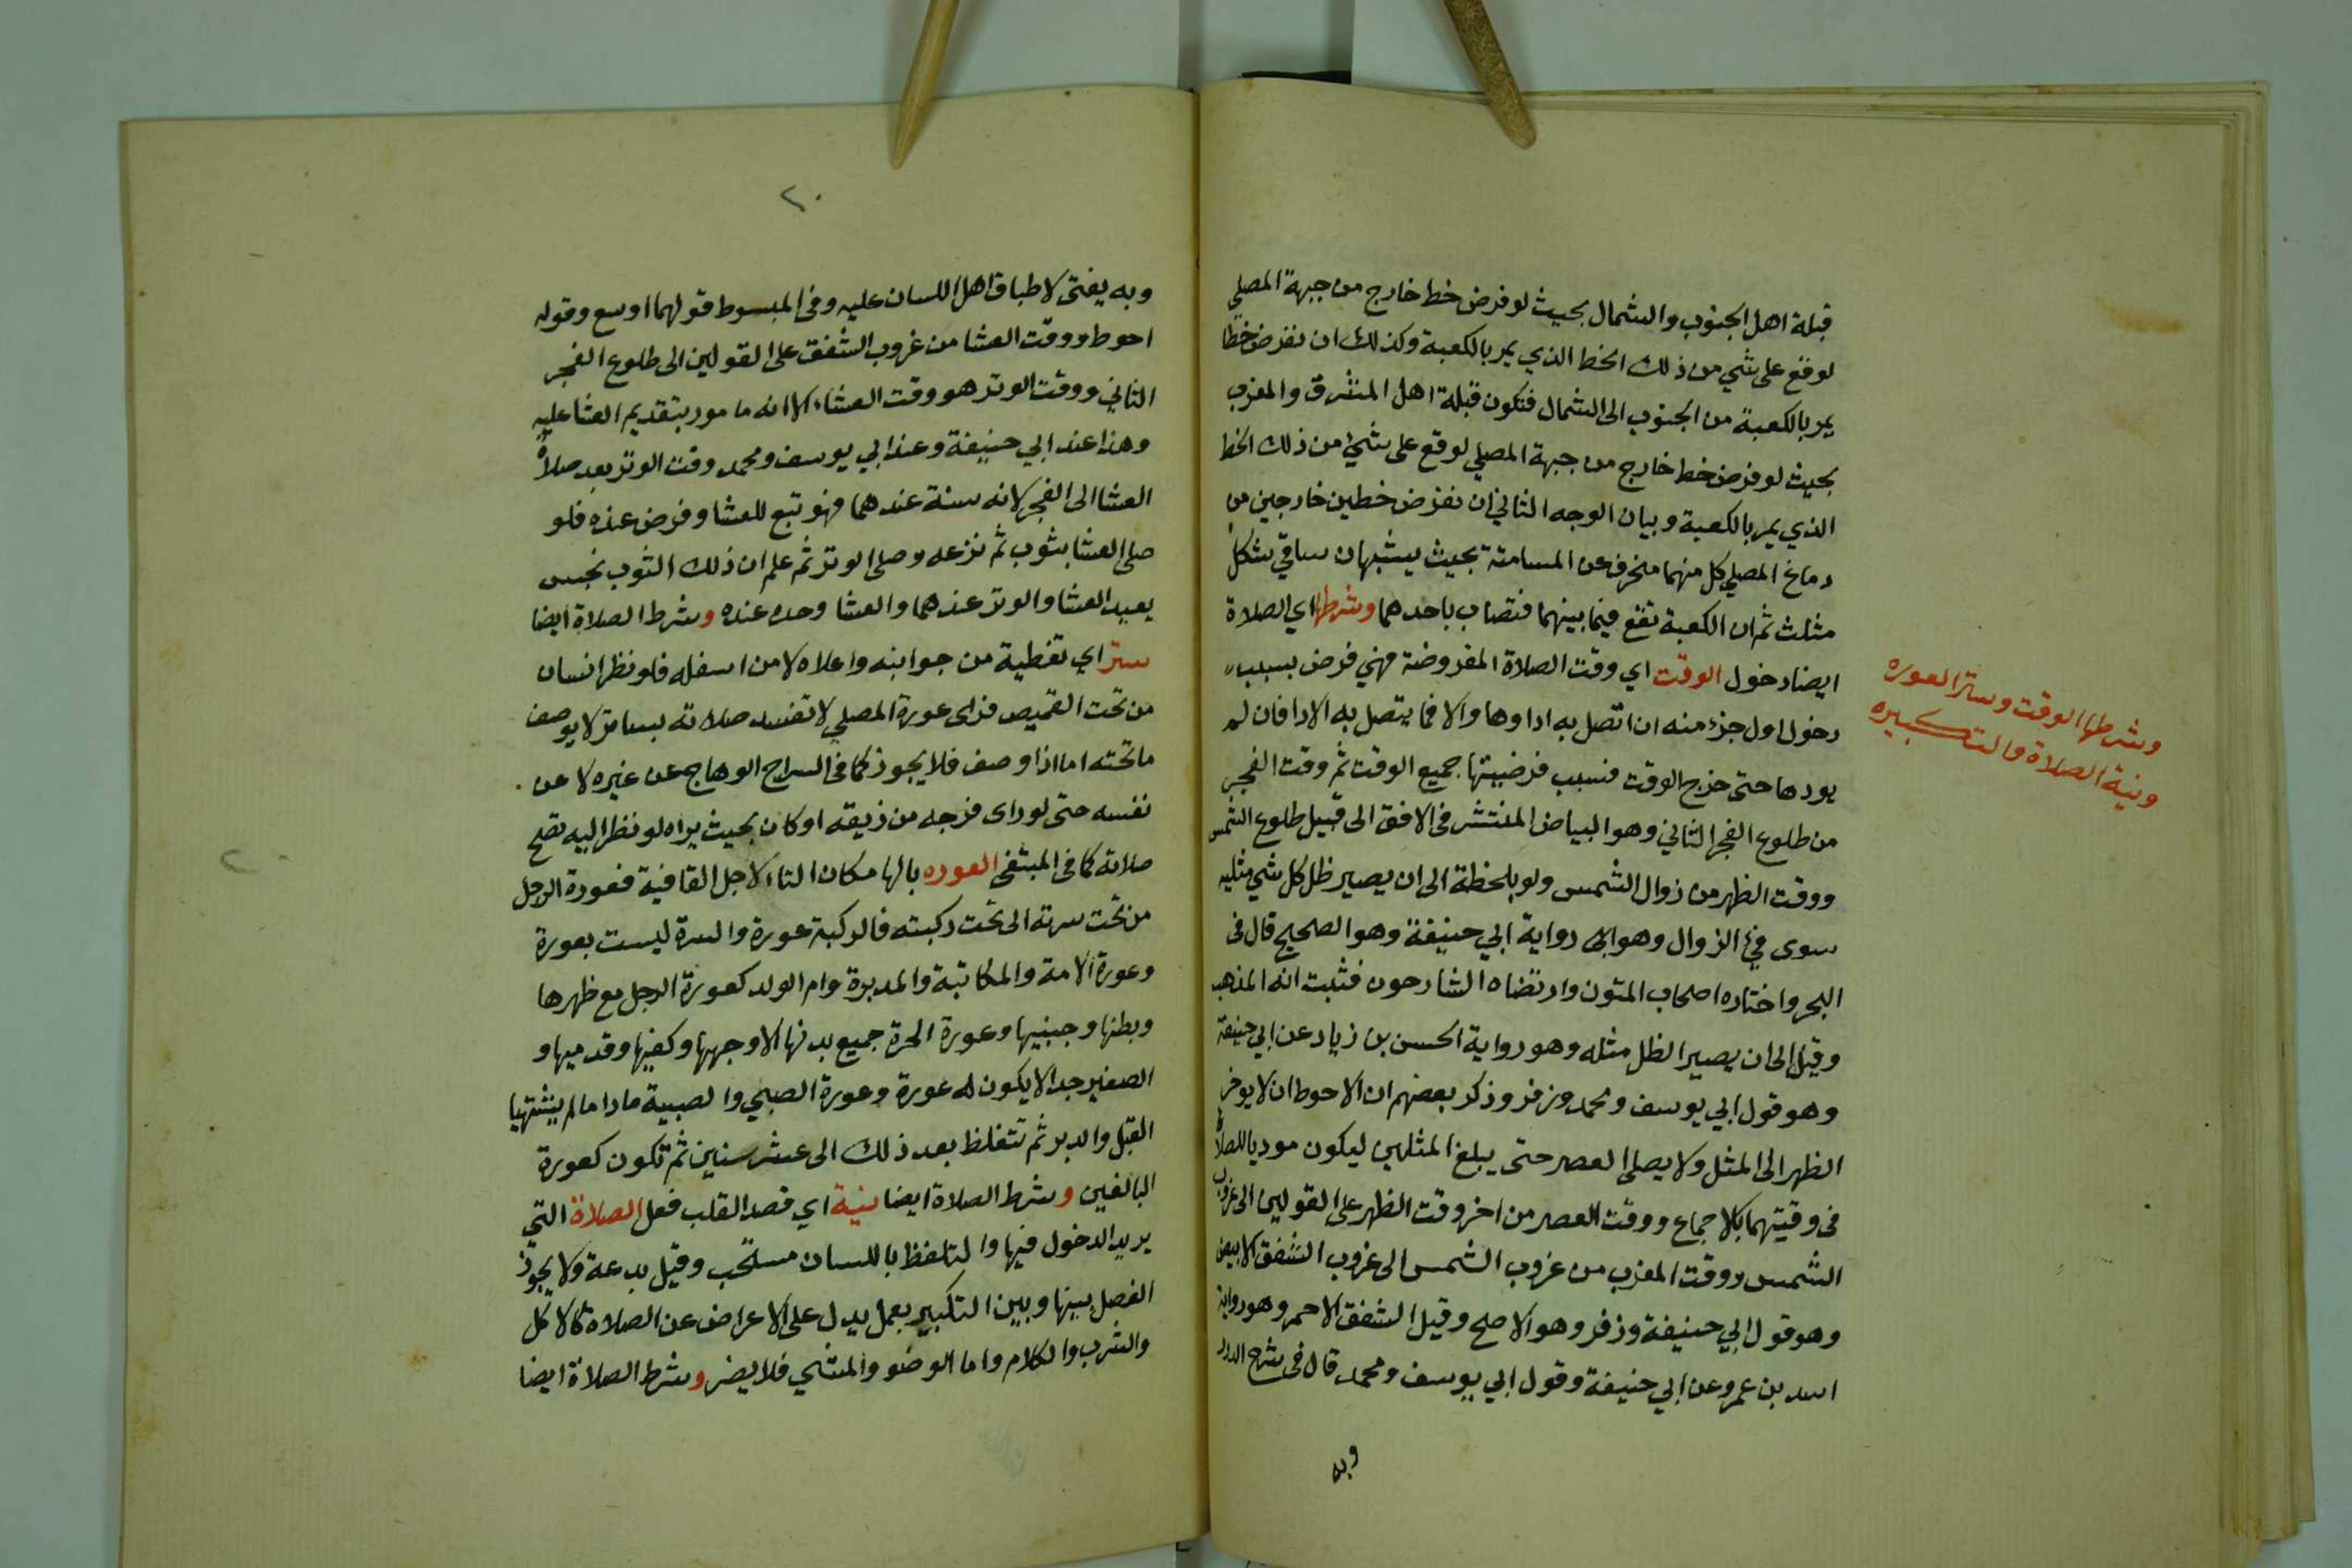 قبلة اهل الجنوب والشمال بحيث لو فرض خط خارج من جبهة المصلي
لوقع على شي من ذلك الخط الذي يمر بالكعبة وكذلك ان نفرض خطا
يمر بالكعبة من الجنوب الى الشمال فتكون قبلة اهل المشرق والمغرب
بحيث لو فرض خط خارج من جبهة المصلي لوقع على شي من ذلك الخط
الذي يمر بالكعبة وبيان الوجه الثاني ان نفرض خطين خارجين من
دماغ المصلي كل منهما منحرف عن المسامتة بحيث يشبهان ساقي شكل
مثلث ثم ان الكعبة تقع فيما بينهما فتصاب باحدهما وشرطها اي الصلاة
ايضا دخول الوقت اي وقت الصلاة المفروضة فهي فرض بسبب
دخول اول جزء منه ان اتصل به اداوها والا فما يتصل به الادا فان لم
يودها حتى خرج الوقت فسبب فرضيتها جميع الوقت ثم وقت الفجر
من طلوع الفجر الثاني وهو البياض المنتشر في الافق الى قبيل طلوع الشمس
ووقت الظهر من زوال الشمس ولو بلحظة الى ان يصير ظل كل شي مثليه
سوى في الزوال وهو رواية ابي حنيفة وهو الصحيح قال في
البحر واختاره اصحاب المتون وارتضاه الشارحون فثبت انه المذهب
وقيل الى ان يصير الظل مثله وهو رواية الحسن بن زياد عن ابي حنيفة
وهو قول ابي يوسف ومحمد وزفر وذكر بعضهم ان الاحوط ان لا يوخر
الظهر الى المثل ولا يصلى العصر حتى يبلغ المثلين ليكون موديا للصلاة
في وقيتهما بالاجماع ووقت العصر من اخر وقت الظهر على القولين الى غروب
الشمس ووقت المغرب من غروب الشمس الى غروب الشفق الابيض
وهو قول ابي حنيفة وزفر وهو الاصح وقيل الشفق الاحمر وهو رواية
اسد بن عمرو عن ابي حنيفة وقول ابي يوسف ومحمد قال في شرح الدرر
وبه
وشرطها الوقت وستر العوره
ونية الصلاة والتكبيره
٢٠
وبه يفتى لاطباق اهل اللسان عليه وفي المبسوط قولهما اوسع وقوله
احوط ووقت العشا من غروب الشفق على القولين الى طلوع الفجر
الثاني ووقت الوتر هو وقت العشاء الا انه مامور بتقديم العشا عليه
وهذا عند ابي حنيفة وعند ابي يوسف ومحمد وقت الوتر بعد صلاة
العشا الى الفجر لانه سنة عندهما فهو تبع للعشا وفرض عنده فلو
صلى العشا بثوب ثم نزعه وصلى الوتر ثم علم ان ذلك الثوب نجس
يعيد العشا والوتر عندهما والعشا وحده عنده وشرط الصلاة ايضا
ستر اي تغطية من جوانبه واعلاه لا من اسفله فلو نظر انسان
من تحت القميص فراى عورة المصلي لا تفسد صلاته بساتر لا يوصف
ماتحته اما اذا وصف فلا يجوز كما في السراج الوهاج عن غيره لا عن
نفسه حتى لو راى فرجه من زيقه او كان بحيث يراه لو نظر اليه تصح
صلاته كما في المبتغى العوره بالها مكان التاء لاجل القافية فعورة الرجل
من تحت سرته الى تحت ركبته فالركبة عورة والسرة ليست بعورة
وعورة الامة والمكاتبة والمدبرة وام الولد كعورة الرجل مع ظهرها
وبطنها وجنبيها وعورة الحرة جميع بدنها الا وجهها وكفيها وقدميها و
الصغير جدا لا يكون له عورة وعورة الصبي والصبية ماداما لم يشتهيا
القبل والدبر ثم تتغلظ بعد ذلك الى عشر سنين ثم تكون كعورة
البالغين وشرط الصلاة ايضا نية اي قصد القلب فعل الصلاة التي
يريد الدخول فيها والتلفظ باللسان مستحب وقيل بدعة ولا يجوز
الفصل بينها وبين التكبير بعمل يدل على الاعراض عن الصلاة كالاكل
والشرب والكلام واما الوضو والمشي فلا يضر وشرط الصلاة ايضا